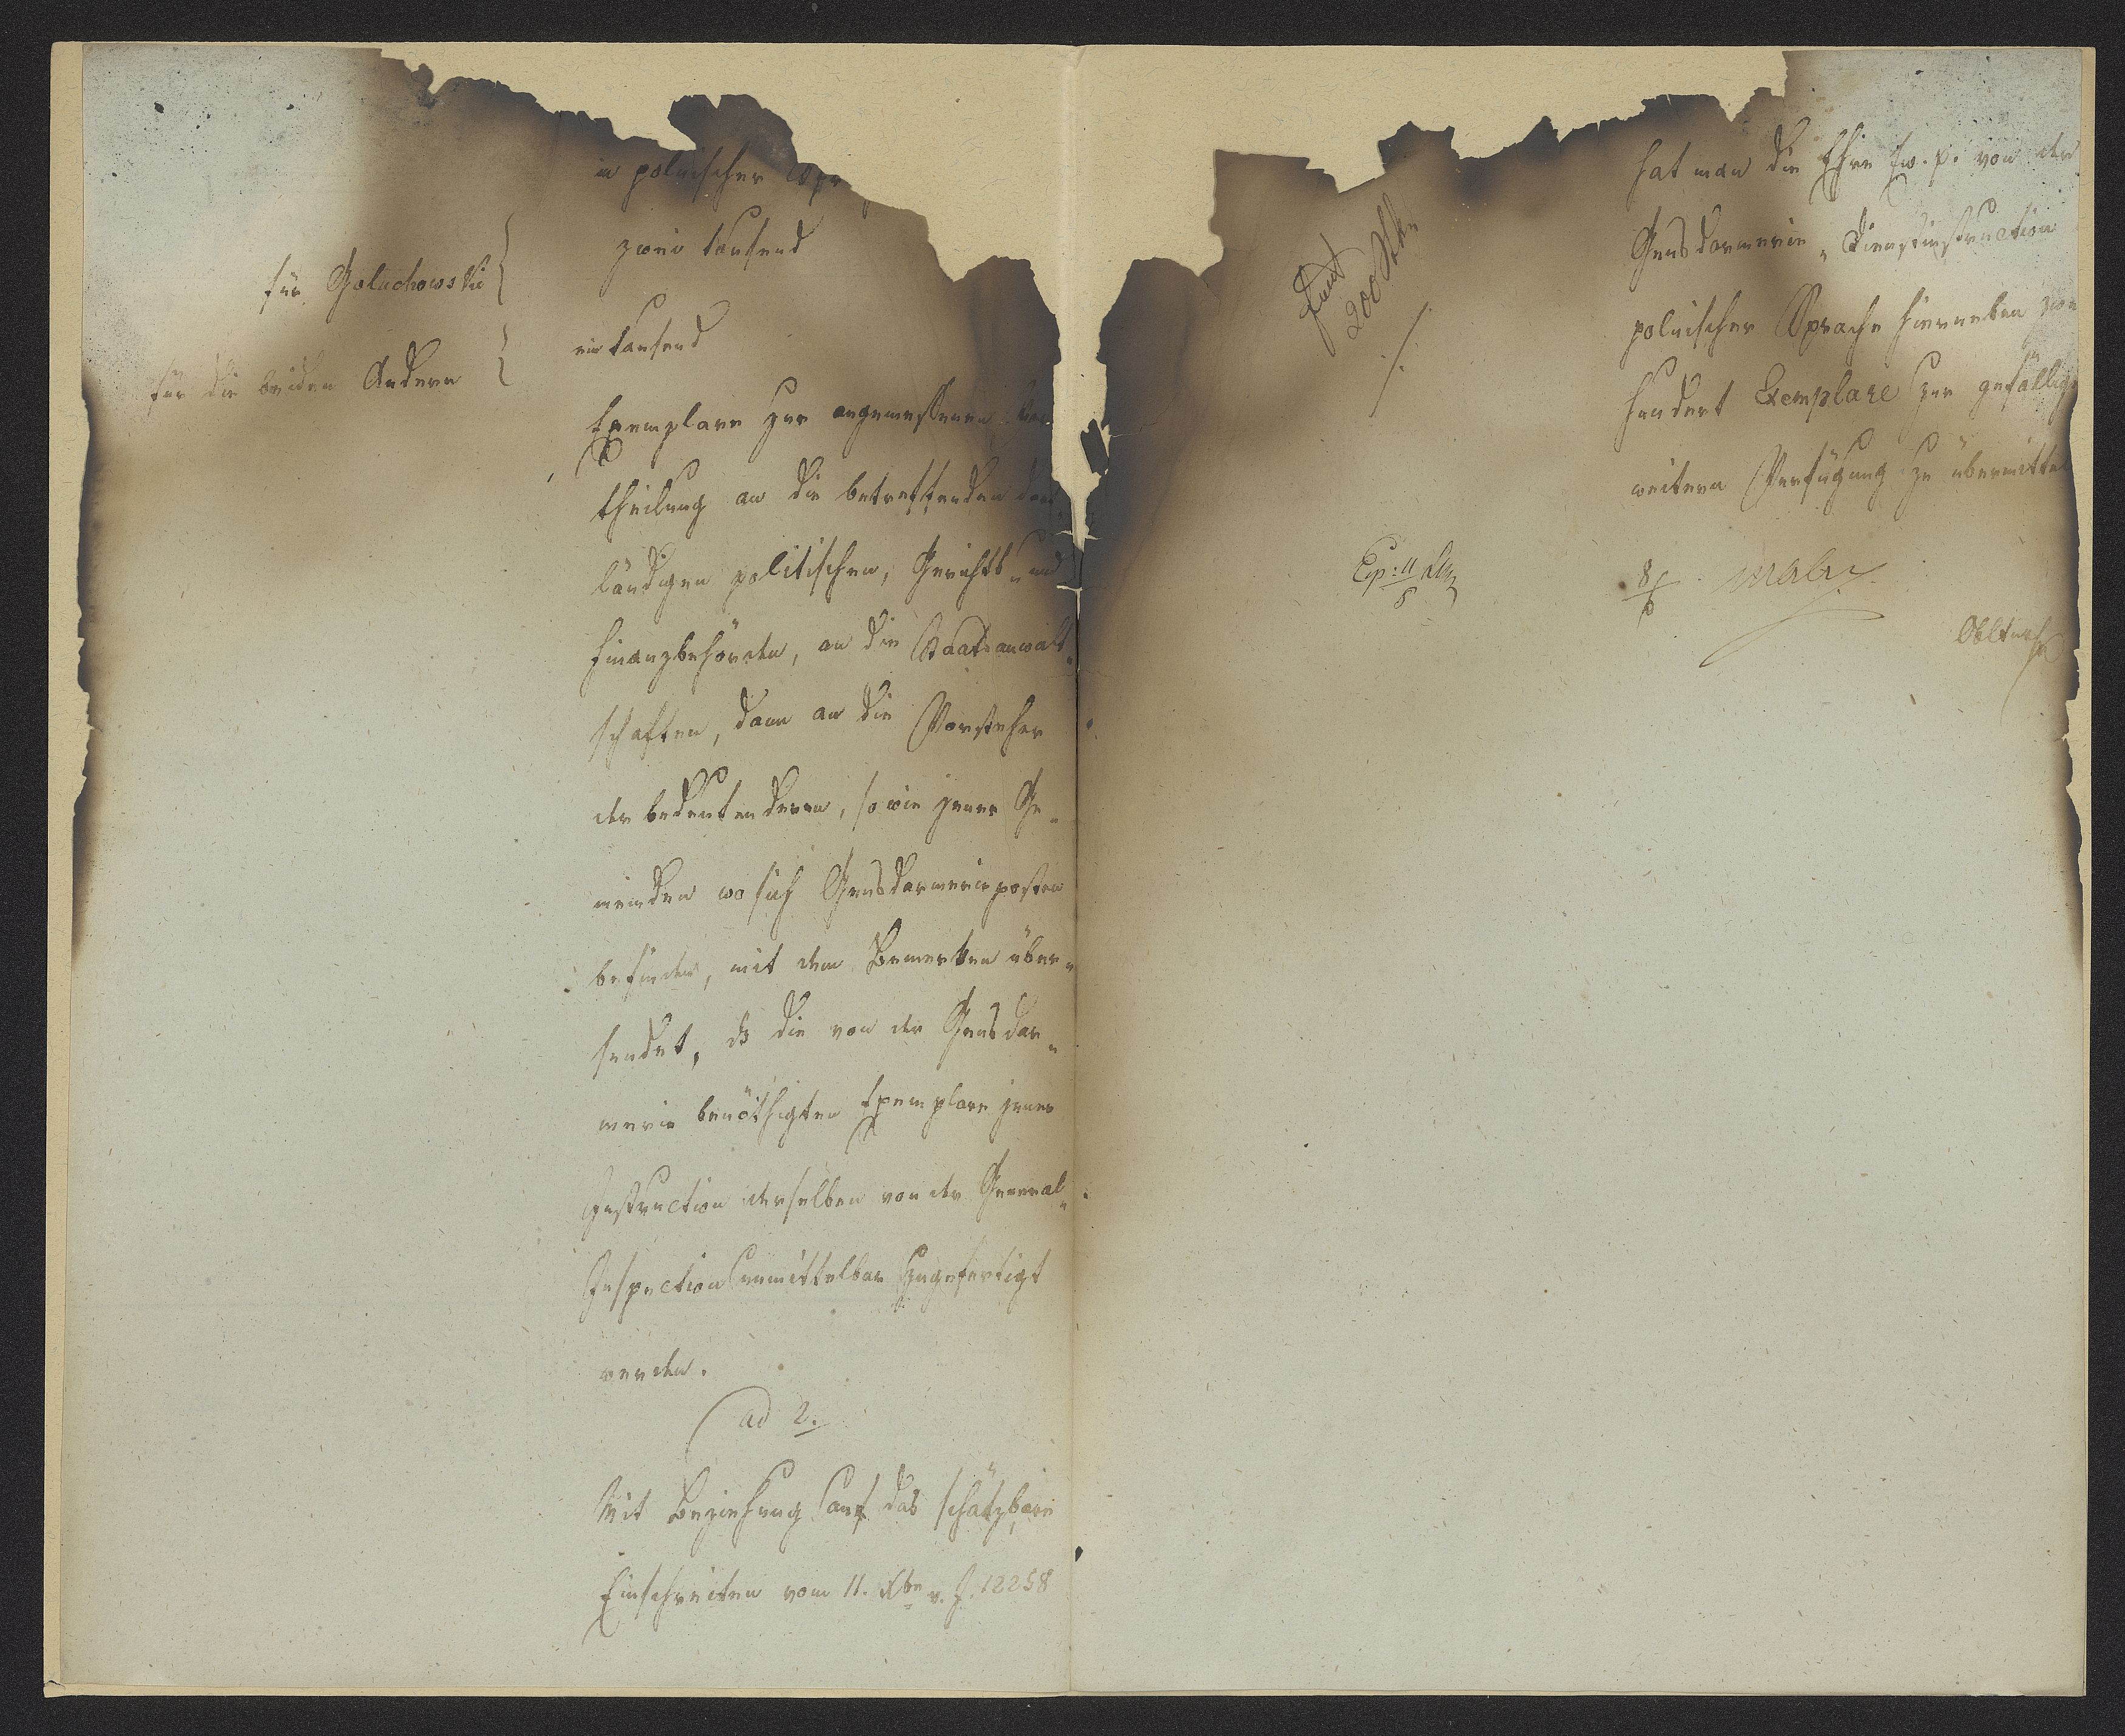 in polnischer Spr
zwei tausend
für Goluchowski
ein tausend
für die beiden Andern
Exemplare zur angemessenen Ver
theilung an die betreffenden dort
ländigen politischen, Gerichts- und
Finanzbehörden, an die Staatsanwalt-
schaften, dann an die Vorsteher
der bedeutenderen, sowie jener Ge-
meinden wo sich Gensdarmerieposten
befinden, mit dem Bemerken über-
sendet, dß die von der Gensdar-
merie benöthigten Exemplare jener
Instruction derselben von der General-
Inspection unmittelbar zugefertigt
werden.
ad 2.
Mit Beziehung auf das schätzbare
Einschreiten vom 11. Xber v. J. 12258
hat man die Ehre Ew. p. von der
Gensdarmerie-Dienstinstruction
polnischer Sprache hierneben zwei
hundert Exemplare zur gefällig
weitern Verfügung zu übermittel
200 Stk
Exp: 11/5
8/5